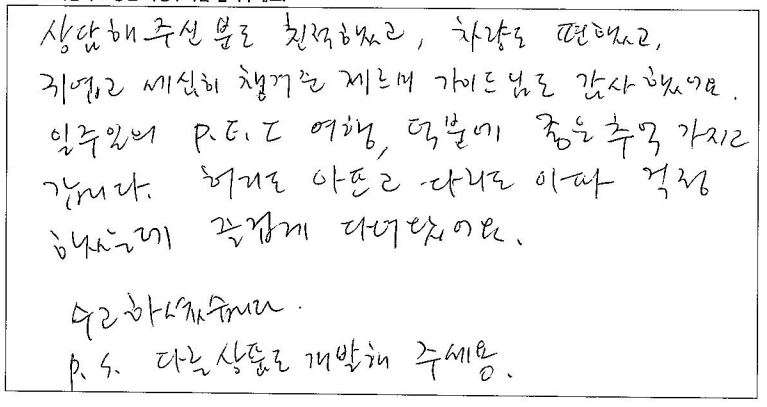 상담해 주신 분도 친절했고, 차량도 편했고,
귀엽고 세심히 챙겨준 제르미 가이드님도 감사했어요.
일주일의 P.E.I 여행, 덕분에 좋은 추억 가지고
갑니다. 허리도 아프고 다리도 아파 걱정
했는데 즐겁게 다녀왔어요.
수고하셨습니다.
P.S. 다른 상품도 개발해 주세용.